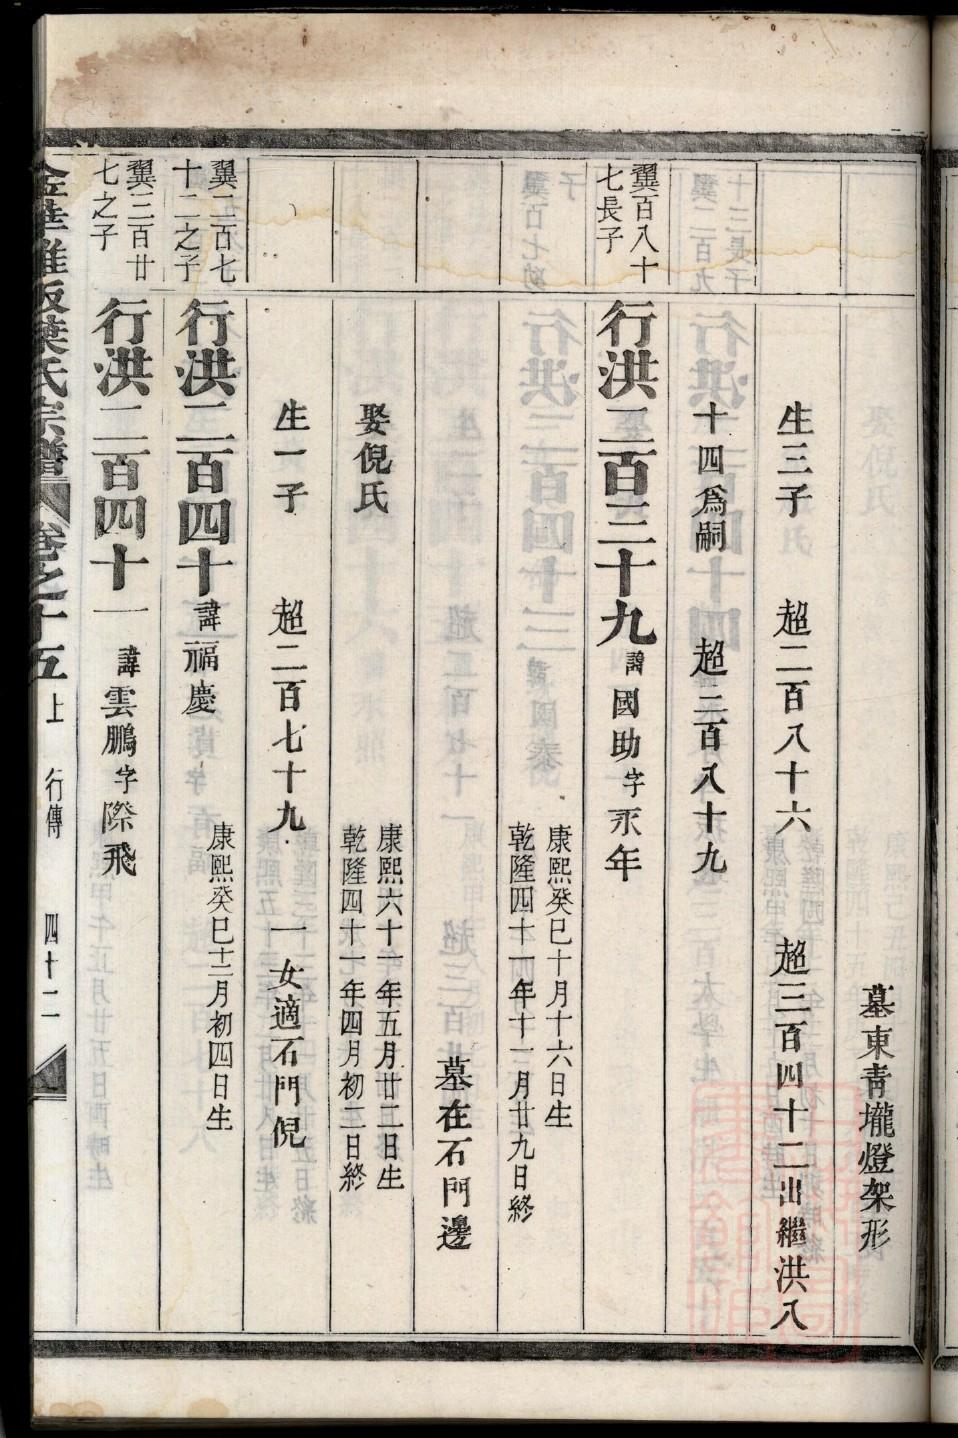 墓東青壠燈架形
生三子　超二百八十六　超三百四十二出繼洪八
十四爲嗣　超二百八十九
翼百八十七長子
行洪二百三十九　諱國助字永年
康熙癸巳十月十六日生
乾隆四十一年十一月廿九日終
墓在石門邊
娶倪氏
康熙六十一年五月廿二日生
乾隆四十一年四月初二日終
生一子　超二百七十九　一女適石門倪
翼二百七十二之子
行洪二百四十　諱福慶
康熙癸巳十二月初四日生
翼三百廿七之子
行洪二百四十一　諱雲鵬字際飛
葉氏宗譜　卷之十五上　行傳　四十二